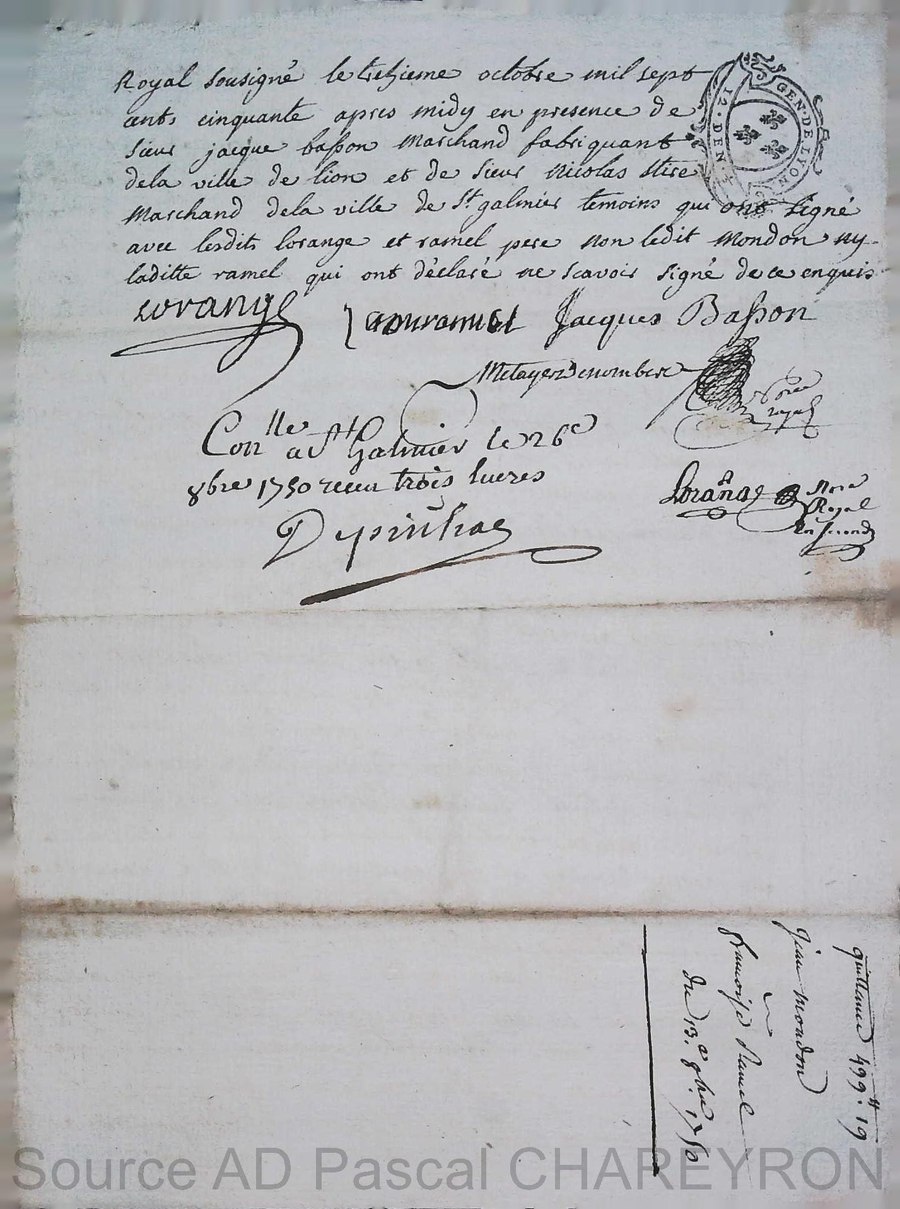 Royal sousigné le trezieme octobre mil sept
cents cinquante apres midy en presence de
sieur jacque basson Marchand fabriquant
dela ville de lion et de sieur Nicolas
Marchand dela ville de St galmier temoins qui ont signé
avec lesdits lorange et ramel pere non ledit Mondon ny
laditte ramel qui ont déclaré ne scavoir signé de ce enquis
GEN·DE LYON
12·DEN·
Lorange
ramel Jacques Basson
Royal
Conlle a St Galmier le 26e
8bre 1750 receu trois livres
Lorange Nore
Royal
En second
quittance 499tt 19
jean mondon
a
francoise Ramel
du 13e 8bre 1750
Source AD Pascal CHAREYRON